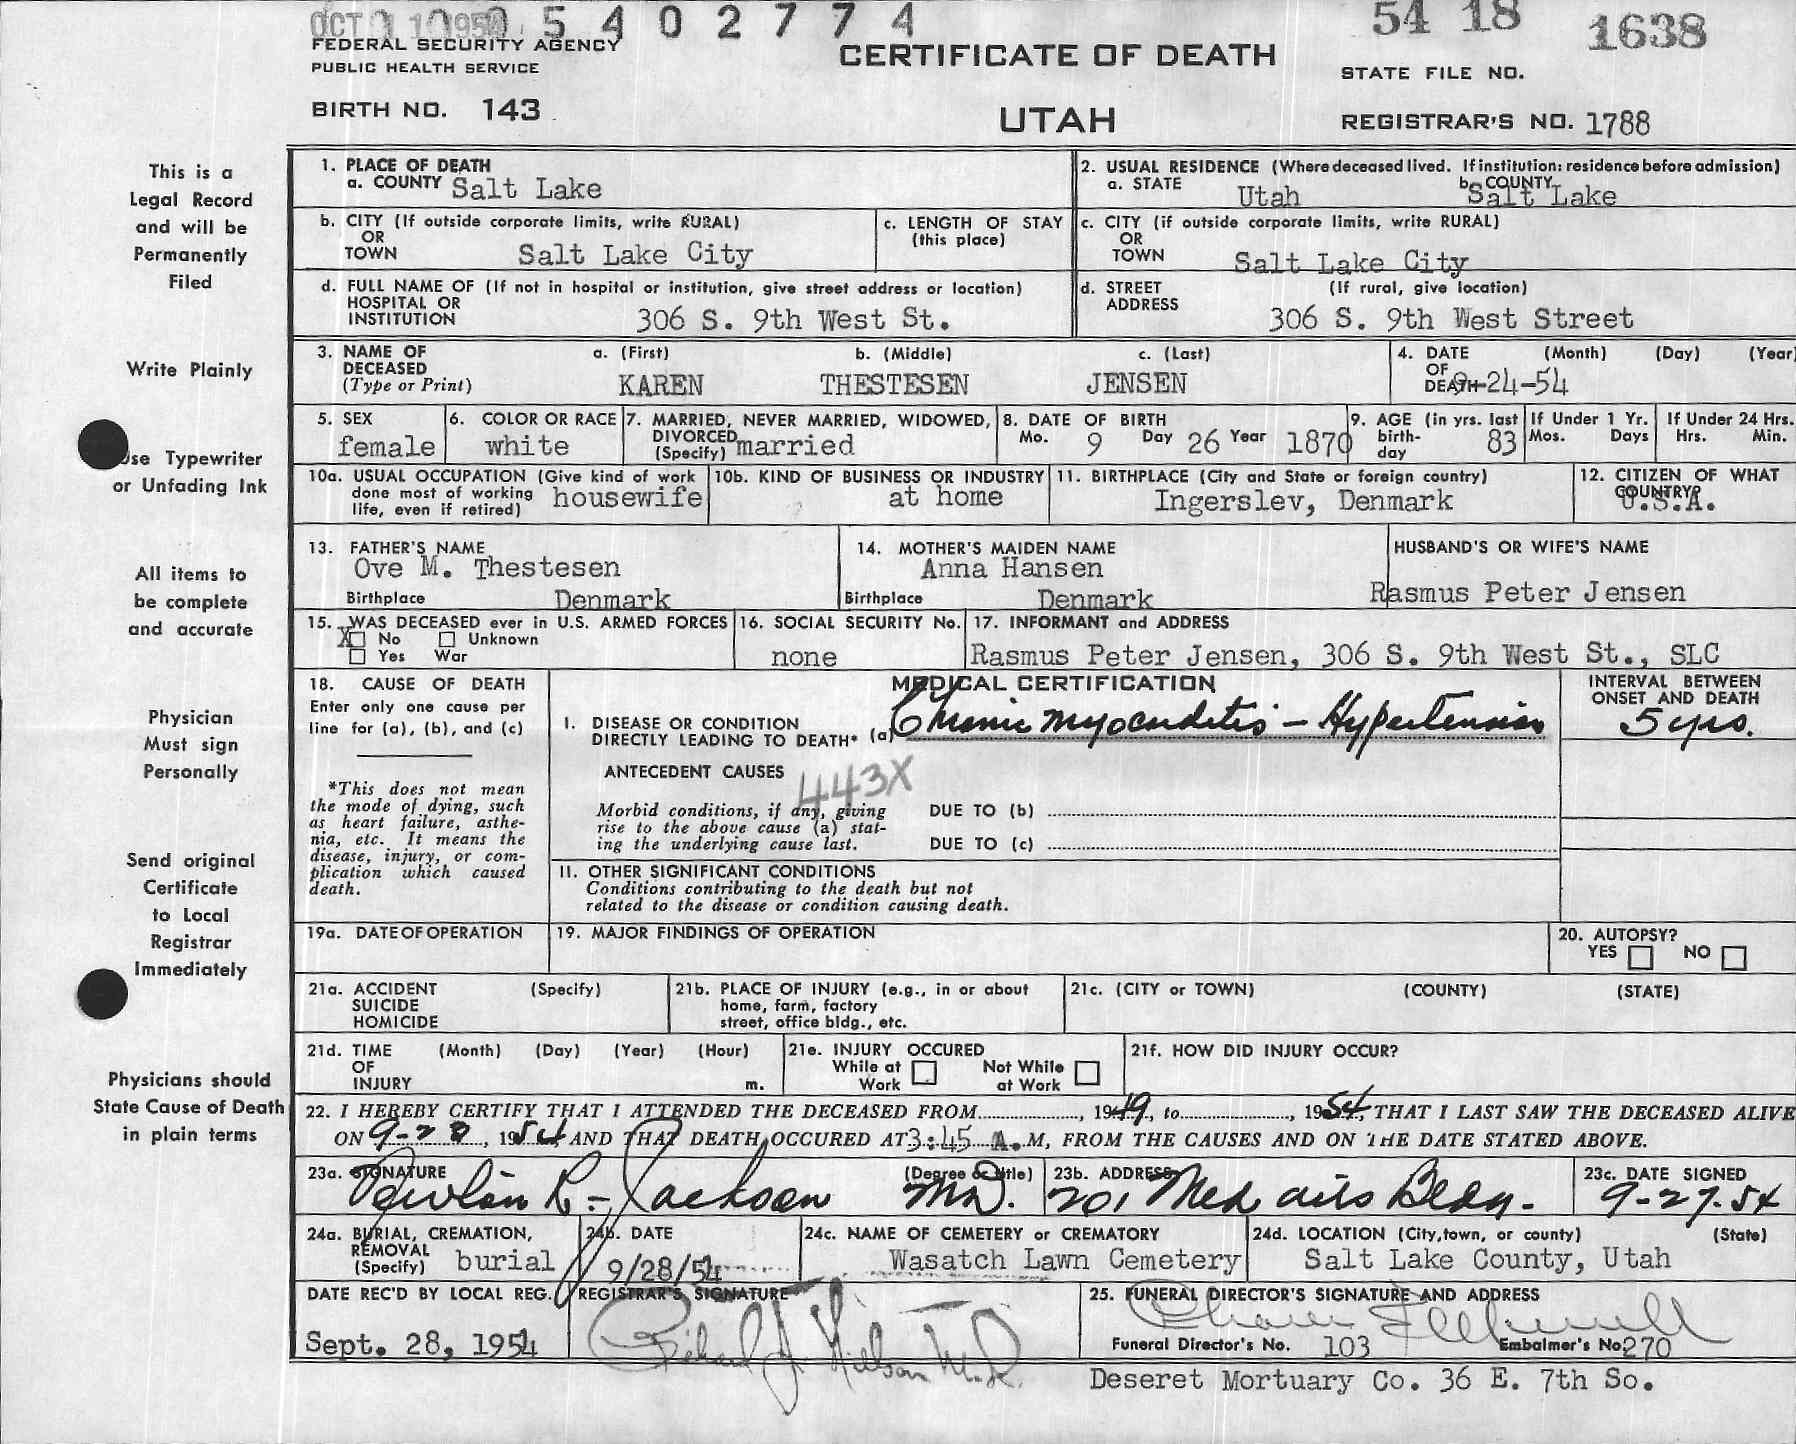 OCT 1 1954 0 5 4 0 2 7 7 4
54 18 1638
FEDERAL SECURITY AGENCY
PUBLIC HEALTH SERVICE
CERTIFICATE OF DEATH
STATE FILE NO.
BIRTH NO. 143
UTAH
REGISTRAR'S NO. 1788
This is a
Legal Record
and will be
Permanently
Filed
Write Plainly
Use Typewriter
or Unfading Ink
All items to
be complete
and accurate
Physician
Must sign
Personally
Send original
Certificate
to Local
Registrar
Immediately
Physicians should
State Cause of Death
in plain terms
1. PLACE OF DEATH
a. COUNTY Salt Lake
2. USUAL RESIDENCE (Where deceased lived. If institution: residence before admission)
a. STATE Utah b. COUNTY Salt Lake
b. CITY (If outside corporate limits, write RURAL)
OR
TOWN Salt Lake City
c. LENGTH OF STAY
(this place)
c. CITY (if outside corporate limits, write RURAL)
OR
TOWN Salt Lake City
d. FULL NAME OF (If not in hospital or institution, give street address or location)
HOSPITAL OR
INSTITUTION 306 S. 9th West St.
d. STREET (If rural, give location)
ADDRESS 306 S. 9th West Street
3. NAME OF a. (First) b. (Middle) c. (Last)
DECEASED
(Type or Print) KAREN THESTESEN JENSEN
4. DATE (Month) (Day) (Year)
OF
DEATH 9-24-54
5. SEX
female
6. COLOR OR RACE
white
7. MARRIED, NEVER MARRIED, WIDOWED,
DIVORCED
(Specify) married
8. DATE OF BIRTH
Mo. 9 Day 26 Year 1870
9. AGE (in yrs. last
birth-
day 83
If Under 1 Yr.
Mos. Days
If Under 24 Hrs.
Hrs. Min.
10a. USUAL OCCUPATION (Give kind of work
done most of working
life, even if retired) housewife
10b. KIND OF BUSINESS OR INDUSTRY
at home
11. BIRTHPLACE (City and State or foreign country)
Ingerslev, Denmark
12. CITIZEN OF WHAT
COUNTRY?
U.S.A.
13. FATHER'S NAME
Ove M. Thestesen
Birthplace Denmark
14. MOTHER'S MAIDEN NAME
Anna Hansen
Birthplace Denmark
HUSBAND'S OR WIFE'S NAME
Rasmus Peter Jensen
15. WAS DECEASED ever in U.S. ARMED FORCES
X No Unknown
Yes War
16. SOCIAL SECURITY No.
none
17. INFORMANT and ADDRESS
Rasmus Peter Jensen, 306 S. 9th West St., SLC
18. CAUSE OF DEATH
Enter only one cause per
line for (a), (b), and (c)
*This does not mean
the mode of dying, such
as heart failure, asthe-
nia, etc. It means the
disease, injury, or com-
plication which caused
death.
MEDICAL CERTIFICATION
I. DISEASE OR CONDITION
DIRECTLY LEADING TO DEATH* (a) Chronic myocarditis - Hypertension
INTERVAL BETWEEN
ONSET AND DEATH
5 yrs.
ANTECEDENT CAUSES
443X
Morbid conditions, if any, giving
rise to the above cause (a) stat-
ing the underlying cause last.
DUE TO (b)
DUE TO (c)
II. OTHER SIGNIFICANT CONDITIONS
Conditions contributing to the death but not
related to the disease or condition causing death.
19a. DATE OF OPERATION
19. MAJOR FINDINGS OF OPERATION
20. AUTOPSY?
YES NO
21a. ACCIDENT (Specify)
SUICIDE
HOMICIDE
21b. PLACE OF INJURY (e.g., in or about
home, farm, factory
street, office bldg., etc.
21c. (CITY or TOWN) (COUNTY) (STATE)
21d. TIME (Month) (Day) (Year) (Hour)
OF
INJURY m.
21e. INJURY OCCURED
While at Not While
Work at Work
21f. HOW DID INJURY OCCUR?
22. I HEREBY CERTIFY THAT I ATTENDED THE DECEASED FROM, 1949, to, 1954, THAT I LAST SAW THE DECEASED ALIVE
ON 9-20, 1954 AND THAT DEATH OCCURED AT 3:45 A. M, FROM THE CAUSES AND ON THE DATE STATED ABOVE.
23a. SIGNATURE (Degree or title)
R. Jackson MD.
23b. ADDRESS
201 Med arts Bldg.
23c. DATE SIGNED
9-27-54
24a. BURIAL, CREMATION,
REMOVAL
(Specify) burial
24b. DATE
9/28/54
24c. NAME OF CEMETERY or CREMATORY
Wasatch Lawn Cemetery
24d. LOCATION (City, town, or county) (State)
Salt Lake County, Utah
DATE REC'D BY LOCAL REG.
Sept. 28, 1954
REGISTRAR'S SIGNATURE
25. FUNERAL DIRECTOR'S SIGNATURE AND ADDRESS
Funeral Director's No. 103 Embalmer's No. 270
Deseret Mortuary Co. 36 E. 7th So.